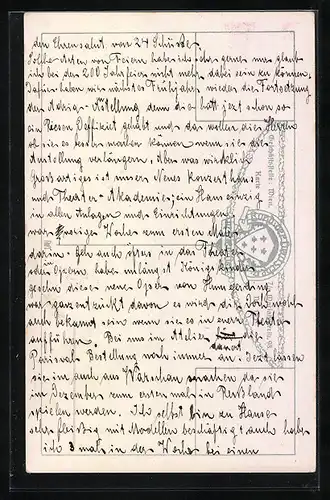 den Ehrensalut von 24 Schüsse.
Solche Arten von Feiern habe ich sehr gerne nur glaub
ich bei der 200 Jahrfeier nicht mehr dabei sein zu können.
Dafür haben wir nächstes Frühjahr wieder die Fortsetzung
der Adria-Austellung denn die hatt jezt schon so
ein Riesen Deffiziet gehabt und da wollen die Herren
ob sie es besser machen können wenn sie die
Austellung verlängern, aber was wirklich
Grossartiges ist unser Neues Konzerthaus
und Theater-Akademie, ein Haus einzig
in allen Anlagen und Einrichtungen
war vorige Woche zum ersten Male
darin. Geh auch öfters in das Theater
oder Opern habe unlängst Königskinder
gesehen diese neue Oper von Humperding
war ganz entzückt davon es wird die Ihnen
auch bekannt sein wenn sie es in euern Theater
aufführen. Bei uns im Atelier davert die
Parsival Bestellung noch immer an. Jezt lassen
sie ihn auch aus Warschau machen da sie
im Dezember zum ersten mal in Rußland
spielen werden. Ich selbst bin zu Hause
sehr fleißig mit Modellen beschäftigt auch habe
ich 3 mal in der Woche bei einen
Geschäftsstelle: Wien
Karte